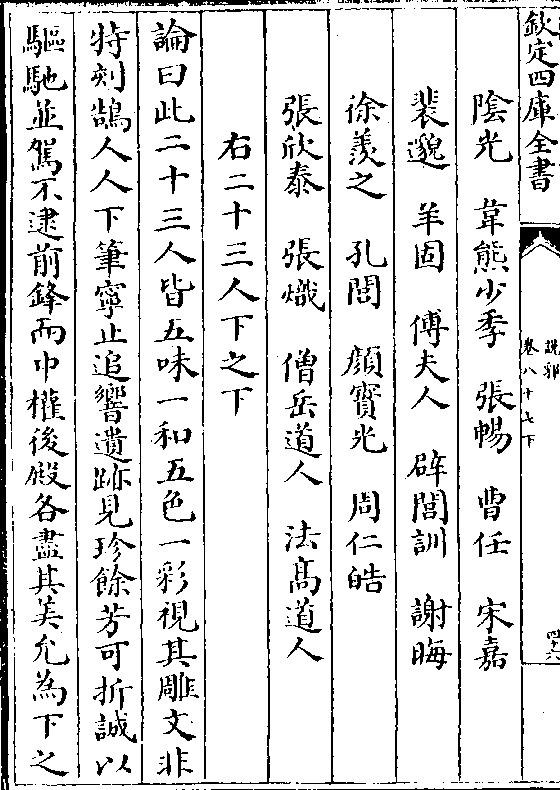 欽定四庫全書
說郛
卷八十七下
四十六
陰光　韋熊少季　張暢　曹任　宋嘉
裴邈　羊固　傅夫人　辟閭訓　謝晦
徐羨之　孔閭　顏寶光　周仁皓
張欣泰　張熾　僧岳道人　法髙道人
右二十三人下之下
論曰此二十三人皆五味一和五色一彩視其雕文非
特刻鵠人人下筆寧止追響遺跡見珍餘芳可折誠以
驅馳並駕不逮前鋒而中權後殿各盡其美允為下之